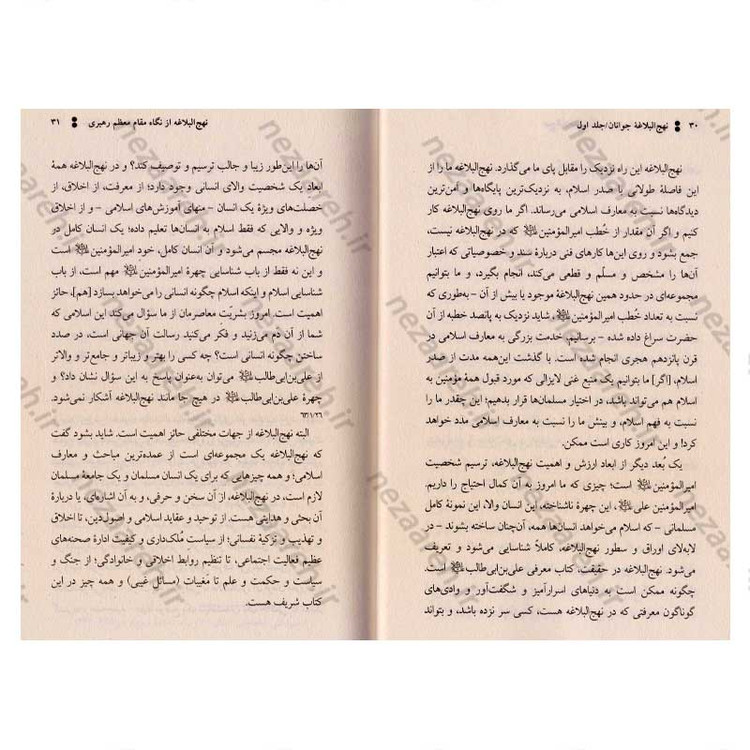 ۳۰ نهج‌البلاغهٔ جوانان/جلد اول
نهج‌البلاغه این راه نزدیک را مقابل پای ما می‌گذارد. نهج‌البلاغه ما را از
این فاصلهٔ طولانی با صدر اسلام، به نزدیک‌ترین پایگاه‌ها و امن‌ترین
دیدگاه‌ها نسبت به معارف اسلامی می‌رساند. اگر ما روی نهج‌البلاغه کار
کنیم و اگر آن مقدار از خُطب امیرالمؤمنین که در نهج‌البلاغه نیست،
جمع بشود و روی این‌ها کارهای فنی دربارهٔ سند و خصوصیاتی که اعتبار
آن‌ها را مشخص و مسلّم و قطعی می‌کند، انجام بگیرد، و ما بتوانیم
مجموعه‌ای در حدود همین نهج‌البلاغهٔ موجود یا بیش از آن – به‌طوری که
نسبت به تعداد خُطب امیرالمؤمنین، شاید نزدیک به پانصد خطبه از آن
حضرت سراغ داده شده – برسانیم، خدمت بزرگی به معارف اسلامی در
قرن پانزدهم هجری انجام شده است. با گذشت این‌همه مدت از صدر
اسلام، [اگر] ما بتوانیم یک منبع غنی لایزالی که مورد قبول همهٔ مؤمنین به
اسلام هم می‌تواند باشد، در اختیار مسلمان‌ها قرار بدهیم؛ این چقدر ما را
نسبت به فهم اسلام، و بینش ما را نسبت به معارف اسلامی مدد خواهد
کرد! و این امروز کاری است ممکن.
یک بُعد دیگر از ابعاد ارزش و اهمیت نهج‌البلاغه، ترسیم شخصیت
امیرالمؤمنین است؛ چیزی که ما امروز به آن کمال احتیاج را داریم.
امیرالمؤمنین علی، این چهرهٔ ناشناخته، این انسان والا، این نمونهٔ کامل
مسلمانی – که اسلام می‌خواهد انسان‌ها همه، آن‌چنان ساخته بشوند – در
لابه‌لای اوراق و سطور نهج‌البلاغه، کاملاً شناسایی می‌شود و تعریف
می‌شود. نهج‌البلاغه در حقیقت، کتاب معرفی علی‌بن‌ابی‌طالب است.
چگونه ممکن است به دنیاهای اسرارآمیز و شگفت‌آور و وادی‌های
گوناگون معرفتی که در نهج‌البلاغه هست، کسی سر نزده باشد، و بتواند
نهج‌البلاغه از نگاه مقام معظم رهبری ۳۱
آن‌ها را این‌طور زیبا و جالب ترسیم و توصیف کند؟ و در نهج‌البلاغه همهٔ
ابعادِ یک شخصیت والای انسانی وجود دارد؛ از معرفت، از اخلاق، از
خصلت‌های ویژهٔ یک انسان – منهای آموزش‌های اسلامی – و از اخلاق
ویژه و والایی که فقط اسلام به انسان‌ها تعلیم داده؛ یک انسان کامل در
نهج‌البلاغه مجسم می‌شود و آن انسان کامل، خود امیرالمؤمنین است
و این نه فقط از باب شناسایی چهرهٔ امیرالمؤمنین مهم است، از باب
شناسایی اسلام و اینکه اسلام چگونه انسانی را می‌خواهد بسازد [هم]، حائز
اهمیت است. امروز بشریّت معاصرمان از ما سؤال می‌کند این اسلامی که
شما از آن دم می‌زنید و فکر می‌کنید رسالت آن جهانی است، در صدد
ساختن چگونه انسانی است؟ چه کسی را بهتر و زیباتر و جامع‌تر و والاتر
از علی‌بن‌ابی‌طالب می‌توان به‌عنوان پاسخ به این سؤال نشان داد؟ و
چهرهٔ علی‌بن‌ابی‌طالب در هیچ جا مانند نهج‌البلاغه آشکار نمی‌شود.
۶۳/۱/۲۶
البته نهج‌البلاغه از جهات مختلفی حائز اهمیت است. شاید بشود گفت
که نهج‌البلاغه یک مجموعه‌ای است از عمده‌ترین مباحث و معارف
اسلامی؛ و همه چیزهایی که برای یک انسان مسلمان و یک جامعهٔ مسلمان
لازم است، در نهج‌البلاغه، از آن سخن و حرفی، و به آن اشاره‌ای، یا دربارهٔ
آن بحثی و هدایتی هست. از توحید و عقاید اسلامی و اصول‌دین، تا اخلاق
و تهذیب و تزکیهٔ نفسانی؛ از سیاست مُلک‌داری و کیفیت ادارهٔ صحنه‌های
عظیم فعالیت اجتماعی، تا تنظیم روابط اخلاقی و خانوادگی؛ از جنگ و
سیاست و حکمت و علم تا مغیبات (مسائل غیبی) و همه چیز در این
کتاب شریف هست.
nezaareh.ir